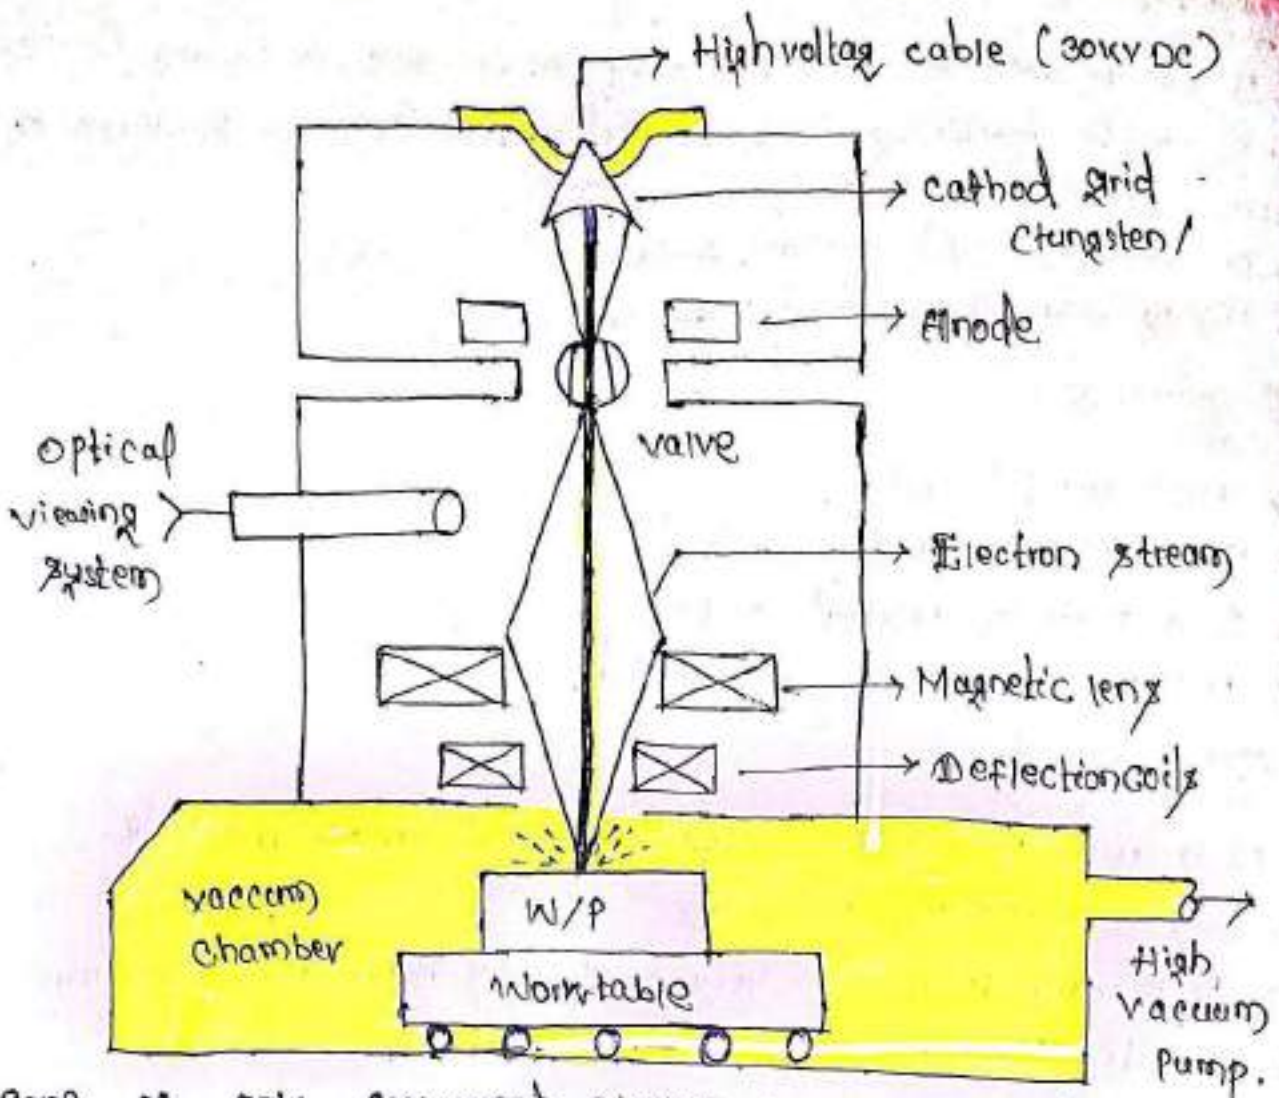 High voltag cable (30kv DC)
cathod grid
(tungsten)
Anode
valve
Optical
viewing
system
Electron stream
Magnetic lens
Deflection coils
vaccum
chamber
W/P
Work table
High
Vacuum
pump.